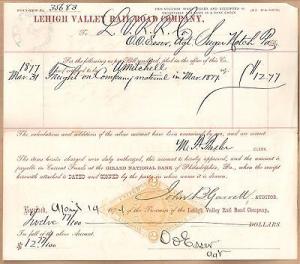 33683
THIS VOUCHER MUST BE DATED AND RECEIPTED
LEHIGH VALLEY RAIL ROAD COMPANY,
To L. V. R. R. Co.
O. O. Esser, Agt, Sugar Notch Pa
For the following as per Bill certified filed in the office of this Co.
1877
Mar. 31 Freight on Company material in Mar. 1877. $12.77
The calculations and additions of the above account have been examined by me, and are correct
The items herein charged were duly authorized, this account is hereby approved, and the amount is
payable in Current Funds at the GIRARD NATIONAL BANK of Philadelphia, Pa., when the receipt
herewith attached is DATED and SIGNED by the party in whose name it is drawn.
John B. Garrett, AUDITOR.
Received, April 19 1877 of the Treasurer of the Lehigh Valley Rail Road Company,
Twelve 77/100 DOLLARS
In full of the above Account.
$12 77/100
O. O. Esser
Agt